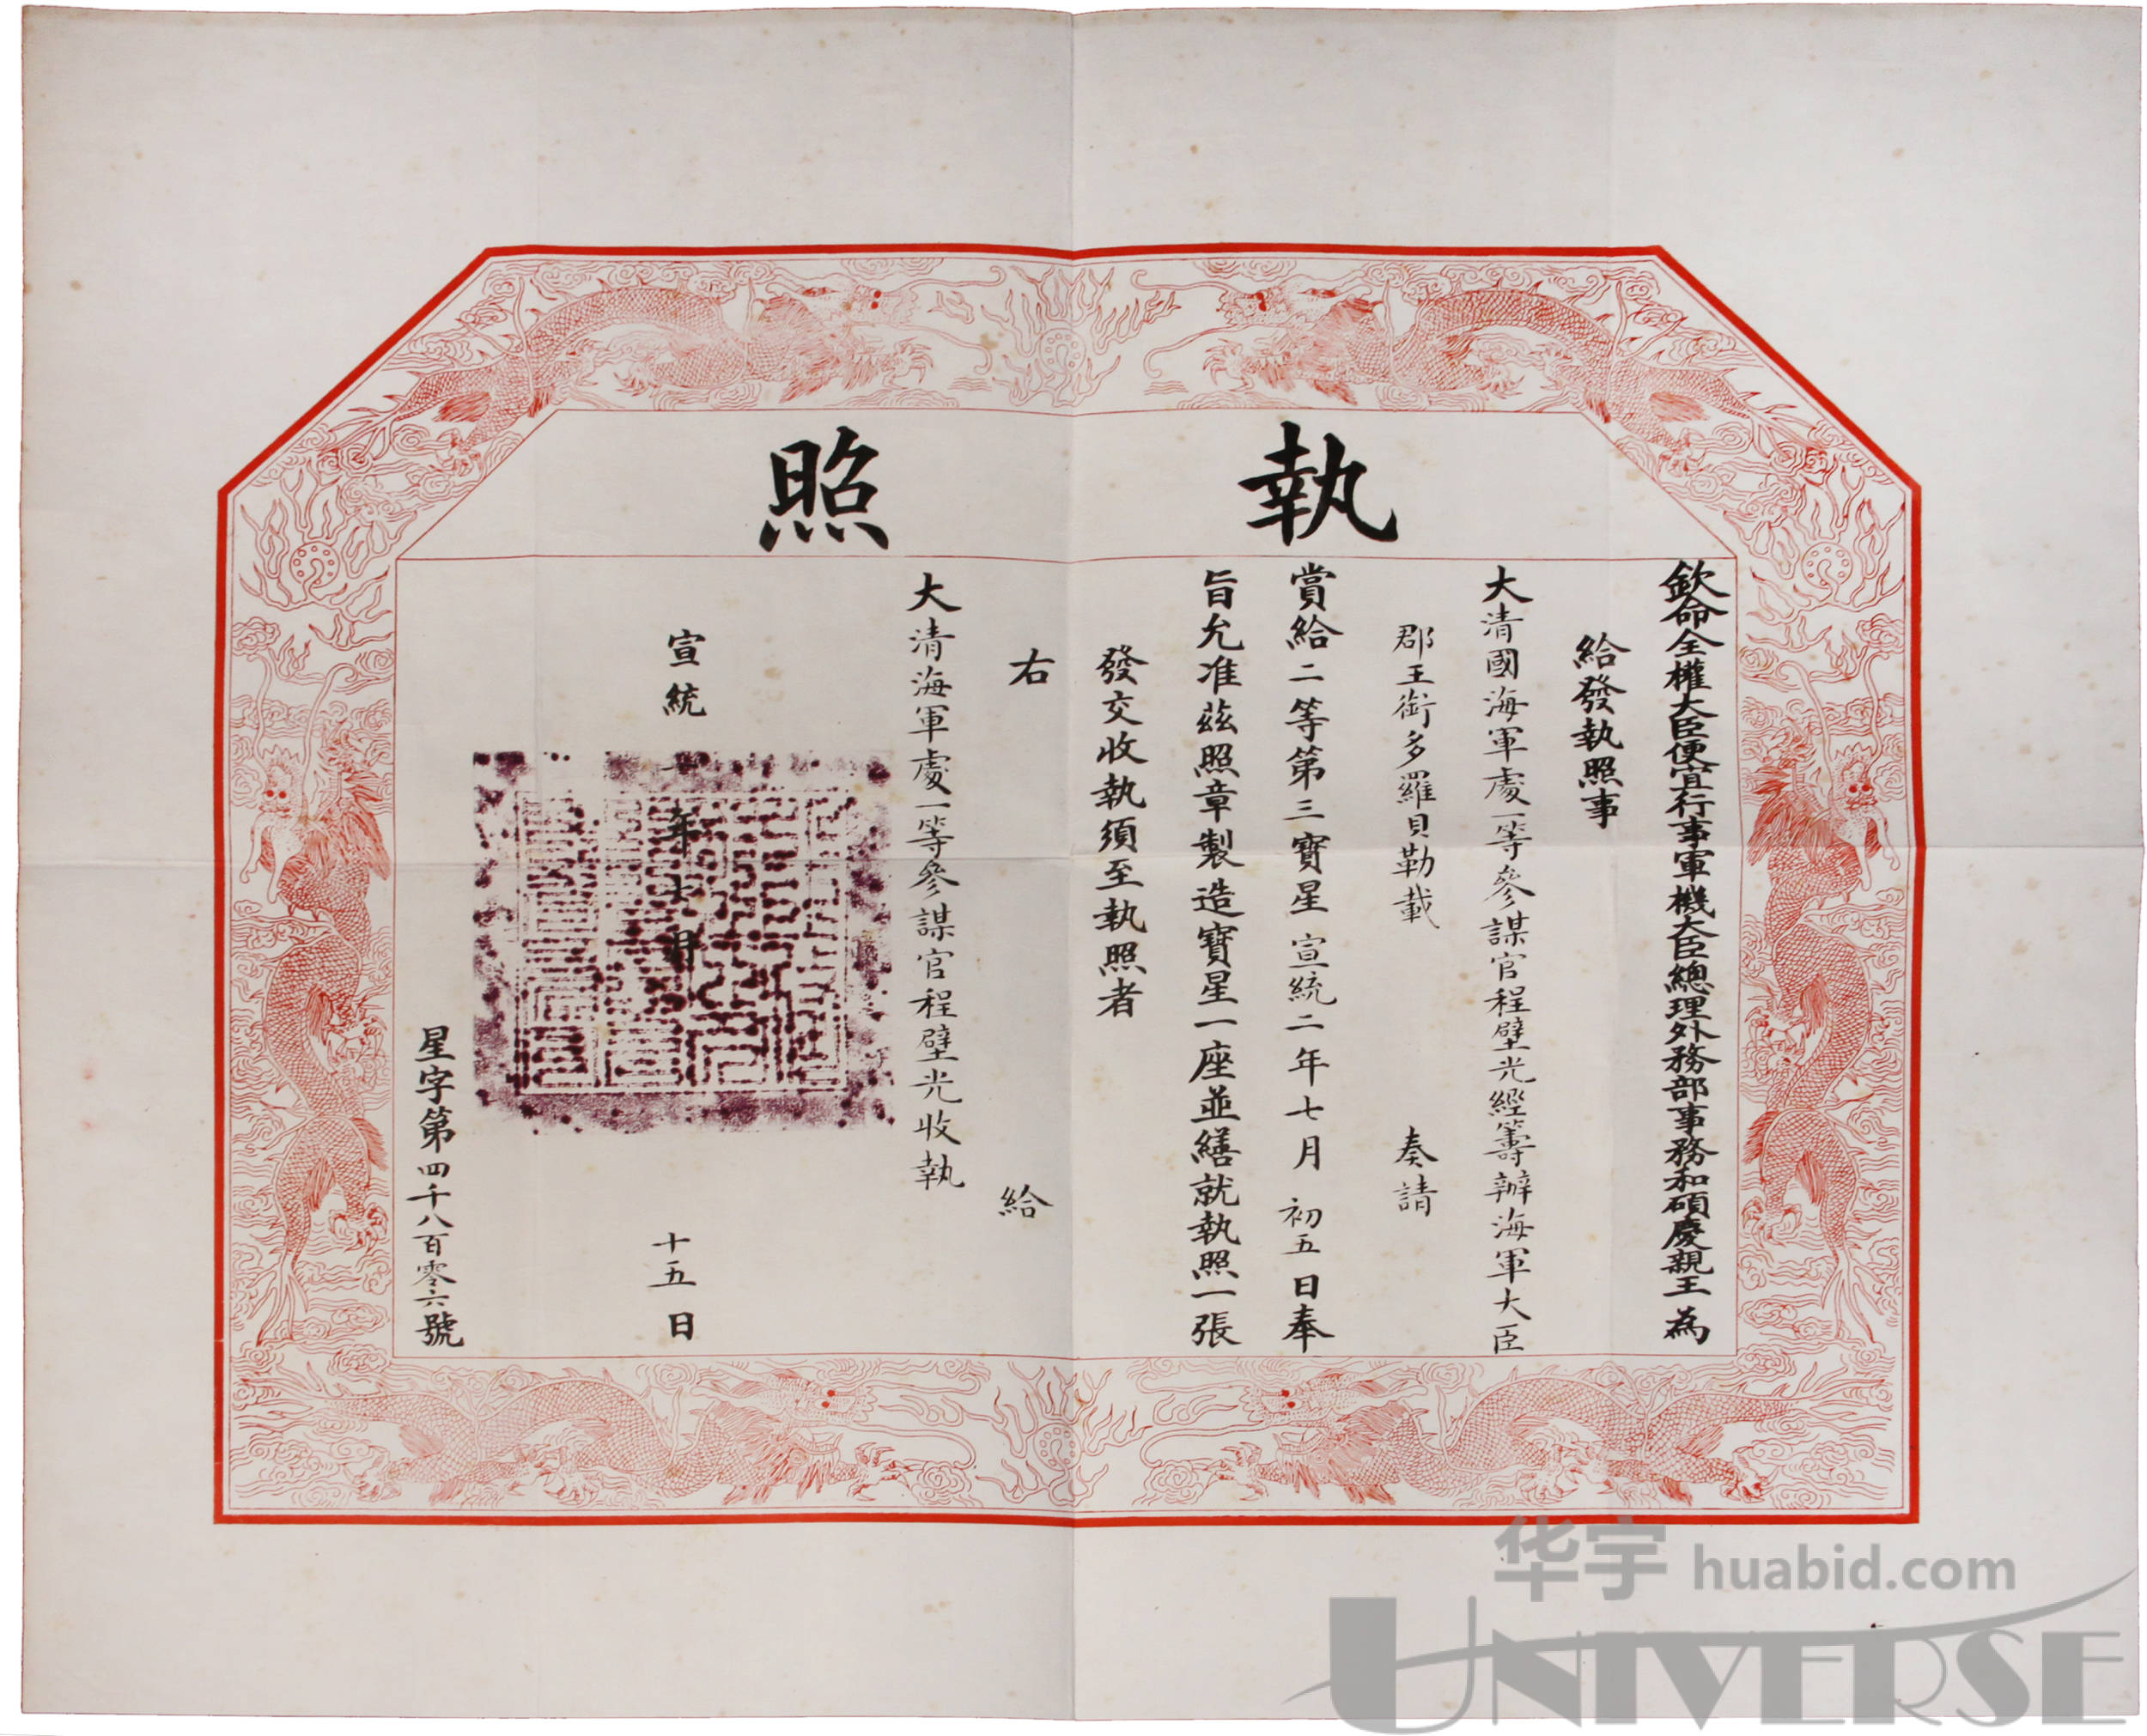 執照
欽命全權大臣便宜行事軍機大臣總理外務部事務和碩慶親王為
給發執照事
大清國海軍處一等參謀官程璧光經籌辦海軍大臣
郡王銜多羅貝勒載 奏請
賞給二等第三寶星宣統二年七月初五日奉
旨允准茲照章製造寶星一座並繕就執照一張
發交收執須至執照者
右 給
大清海軍處一等參謀官程璧光收執
宣統二年七月十五日
星字第四千八百零六號
华宇 huabid.com
UNIVERSE